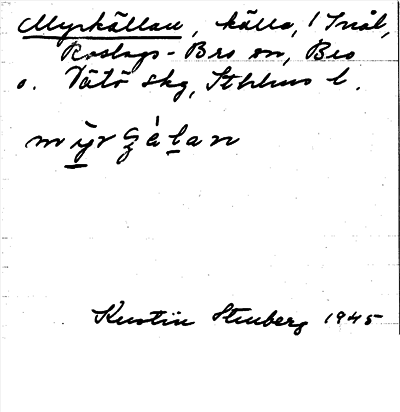 Myrkällan, källa, i Snål,
Roslags-Bro sn, Bro
o. Vätö skg, Sthlms l.
Kerstin Stenberg 1945